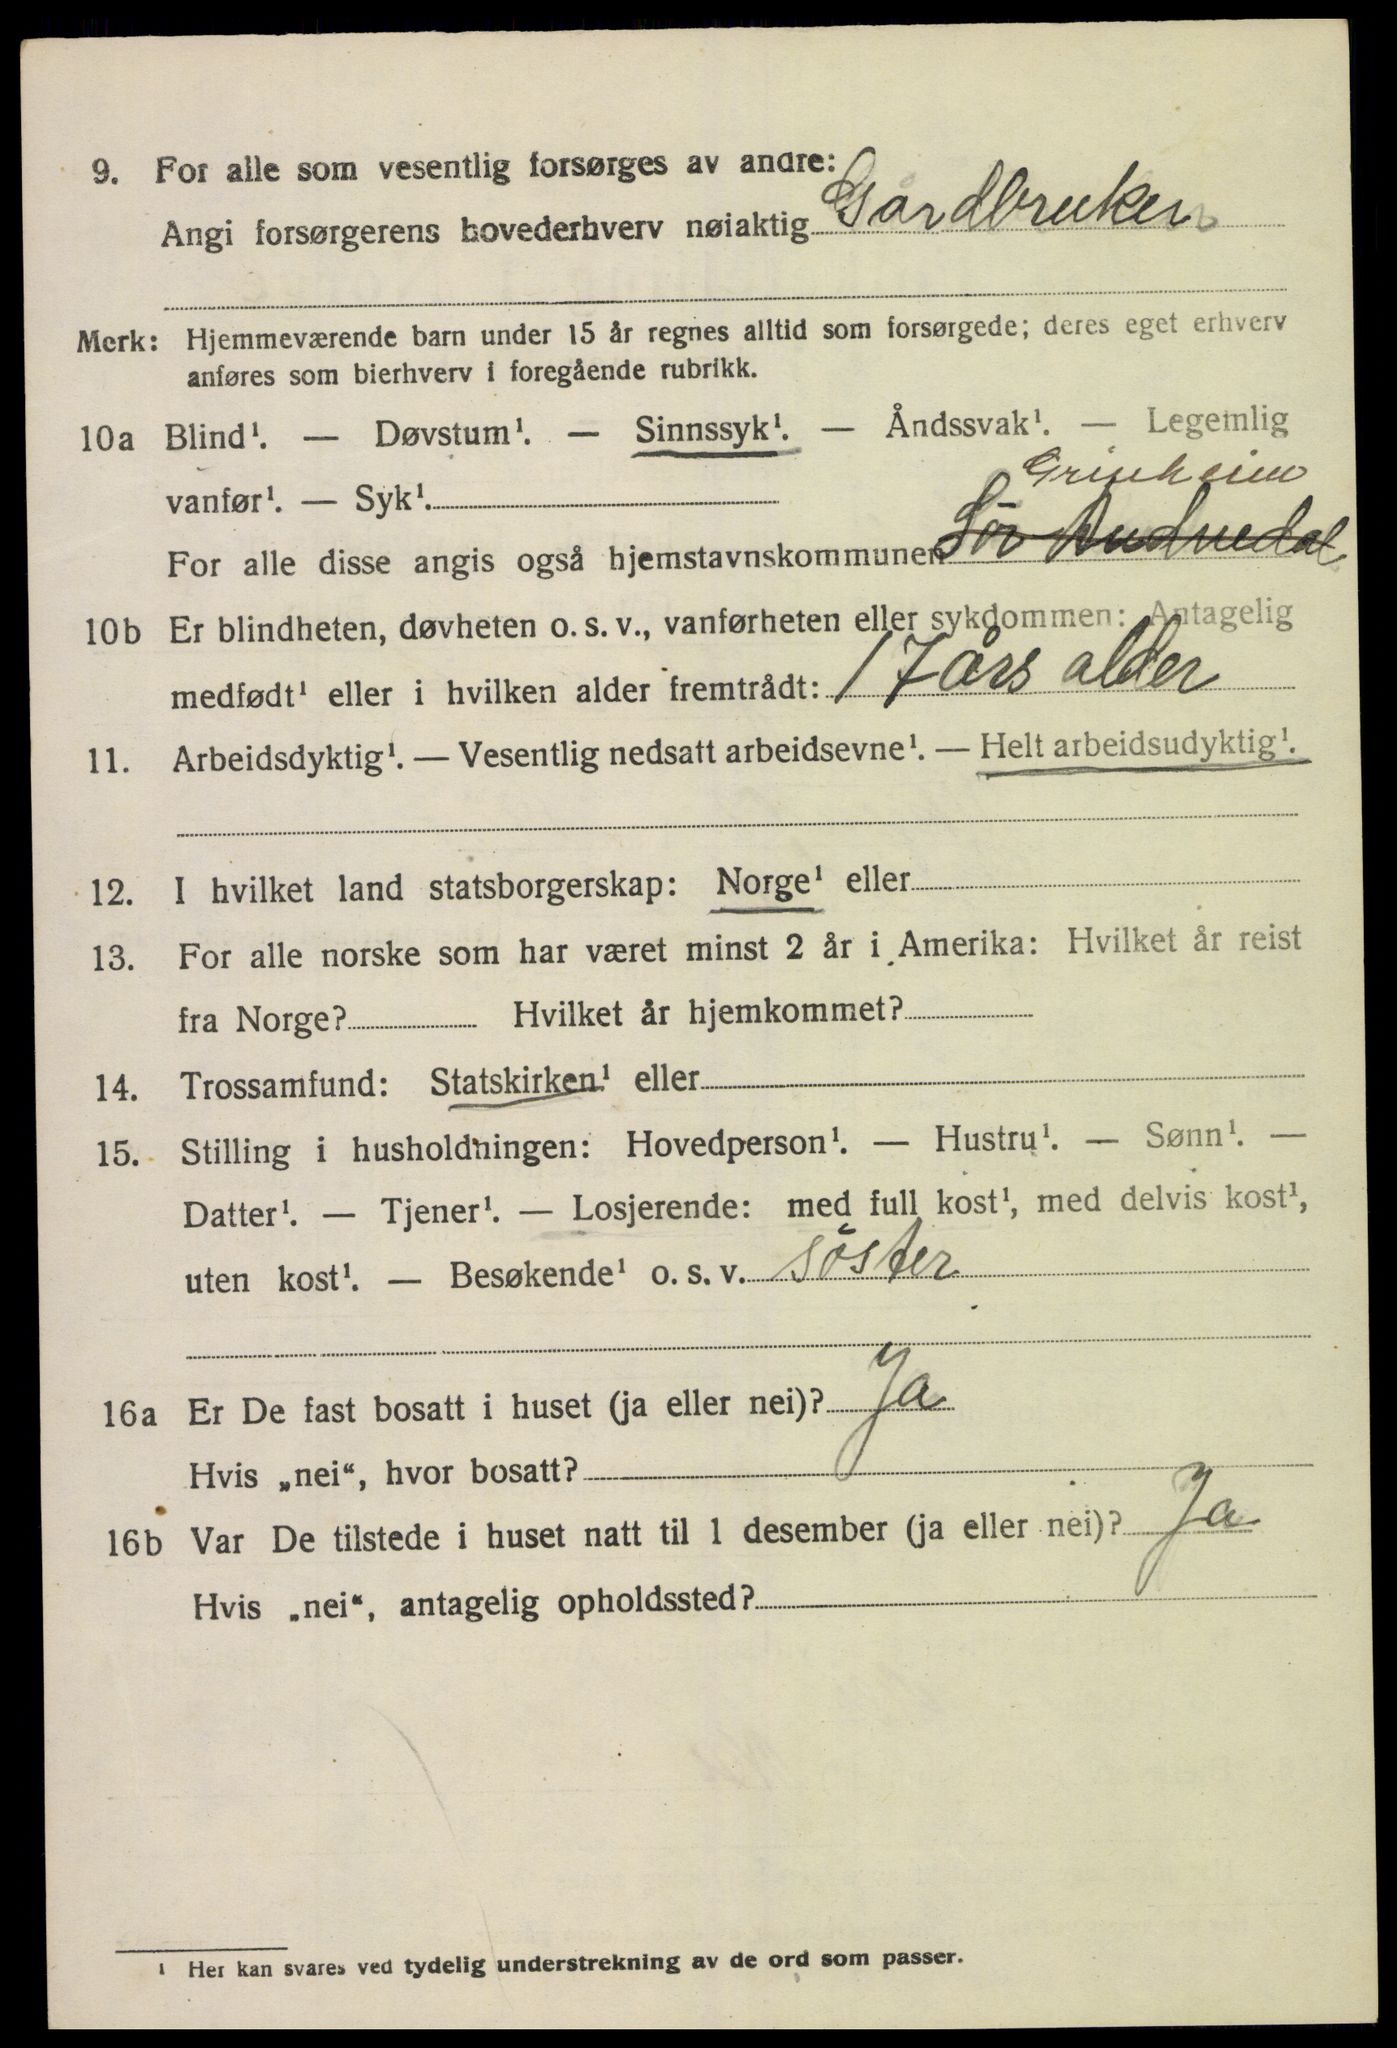 9. For alle som vesentlig forsørges av andre:
Angi forsørgerens hovederhverv nøiaktig Gårdbruker
Merk: Hjemmeværende barn under 15 år regnes alltid som forsørgede; deres eget erhverv
anføres som bierhverv i foregående rubrikk.
10a Blind¹. — Døvstum¹. — Sinnssyk¹. — Åndssvak¹. — Legemlig
vanfør¹. — Syk¹.
Grinheim
For alle disse angis også hjemstavnskommunen Sör Audnedal
10b Er blindheten, døvheten o. s. v., vanførheten eller sykdommen: Antagelig
medfødt¹ eller i hvilken alder fremtrådt: 17 års alder
11. Arbeidsdyktig¹. — Vesentlig nedsatt arbeidsevne¹. — Helt arbeidsudyktig¹.
12. I hvilket land statsborgerskap: Norge¹ eller
13. For alle norske som har været minst 2 år i Amerika: Hvilket år reist
fra Norge? Hvilket år hjemkommet?
14. Trossamfund: Statskirken¹ eller
15. Stilling i husholdningen: Hovedperson¹. — Hustru¹. — Sønn¹. —
Datter¹. — Tjener¹. — Losjerende: med full kost¹, med delvis kost¹,
uten kost¹. — Besøkende¹ o. s. v. söster
16a Er De fast bosatt i huset (ja eller nei)? Ja
Hvis „nei“, hvor bosatt?
16b Var De tilstede i huset natt til 1 desember (ja eller nei)? Ja
Hvis „nei“, antagelig opholdssted?
¹ Her kan svares ved tydelig understrekning av de ord som passer.